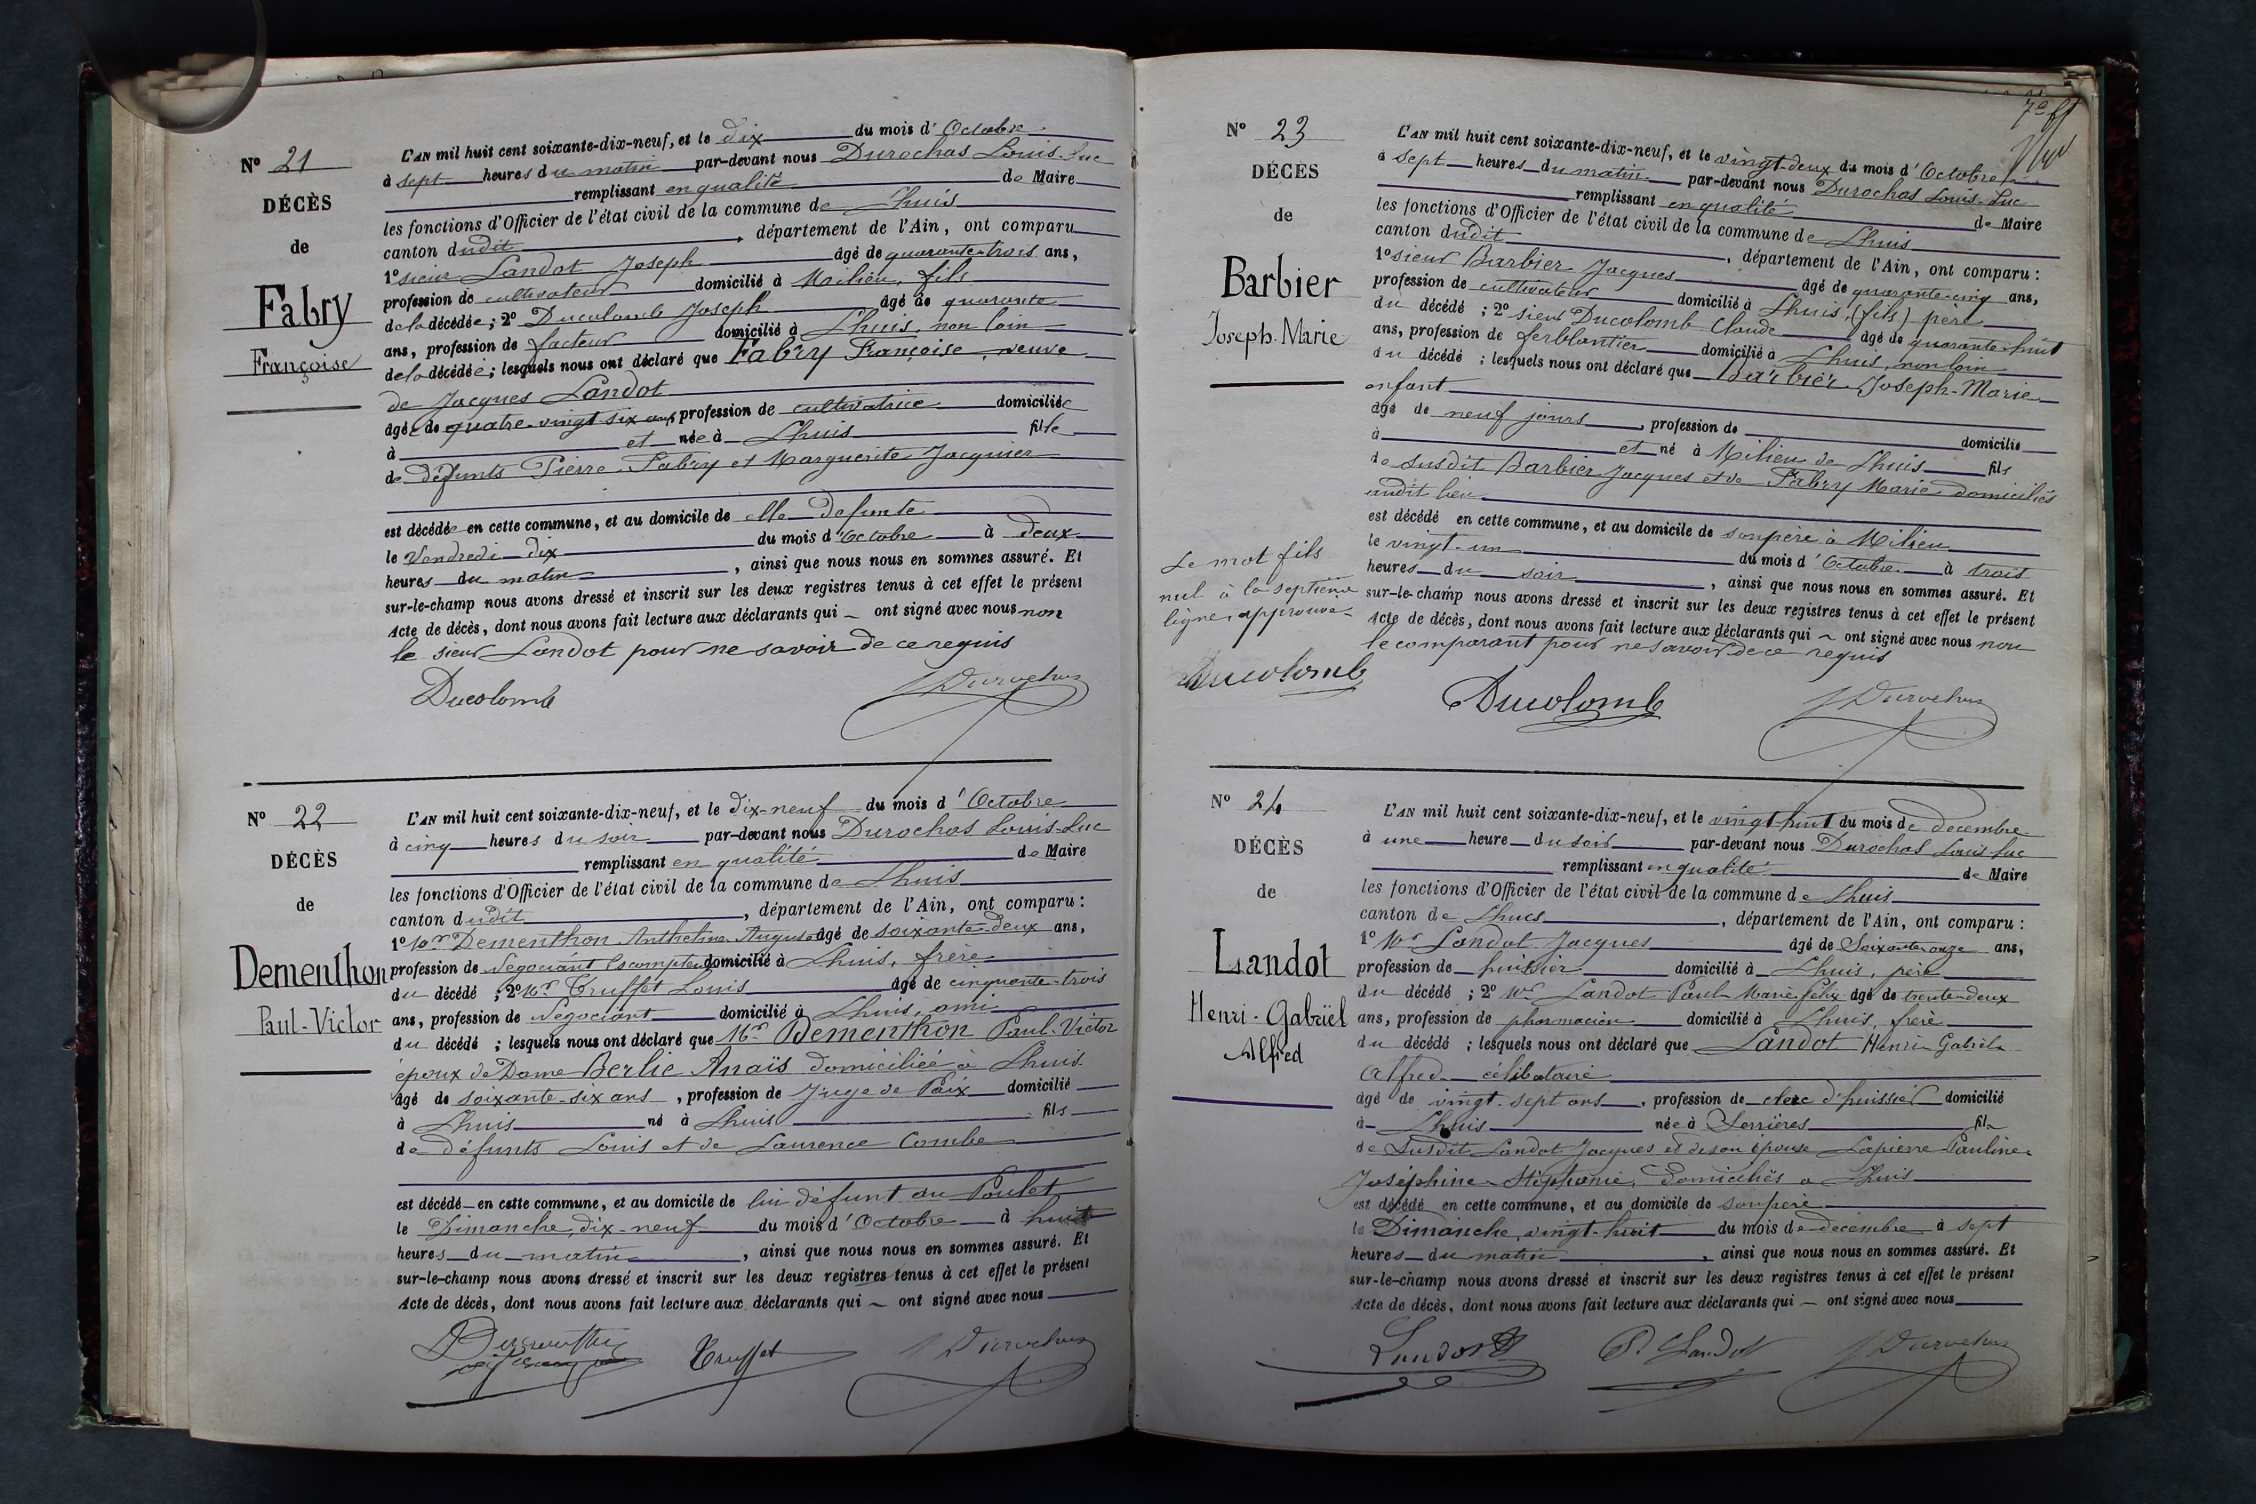 N° 21
DÉCÈS
de
Fabry
Françoise
L'AN mil huit cent soixante-dix-neuf, et le dix du mois d'Octobre
à sept heures du matin par-devant nous Durochas Louis-Luc
remplissant en qualité de Maire
les fonctions d'Officier de l'état civil de la commune de Lhuis
canton dudit , département de l'Ain, ont comparu
1° sieur Landot Joseph âgé de quarante-trois ans,
profession de cultivateur domicilié à Milieu, fils
de la décédée ; 2° Ducolomb Joseph âgé de quarante
ans, profession de facteur domicilié à Lhuis, non loin
de la décédée ; lesquels nous ont déclaré que Fabry Françoise, veuve
de Jacques Landot
âgée de quatre-vingt six ans, profession de cultivatrice domiciliée
à et née à Lhuis fille
de défunts Pierre Fabry et Marguerite Jacquier
est décédée en cette commune, et au domicile de elle défunte
le Vendredi dix du mois d'Octobre à deux
heures du matin , ainsi que nous nous en sommes assuré. Et
sur-le-champ nous avons dressé et inscrit sur les deux registres tenus à cet effet le présent
Acte de décès, dont nous avons fait lecture aux déclarants qui ~ ont signé avec nous non
le sieur Landot pour ne savoir de ce requis
Ducolomb Durochas
N° 22
DÉCÈS
de
Dementhon
Paul-Victor
L'AN mil huit cent soixante-dix-neuf, et le dix-neuf du mois d'Octobre
à cinq heures du soir par-devant nous Durochas Louis-Luc
remplissant en qualité de Maire
les fonctions d'Officier de l'état civil de la commune de Lhuis
canton dudit , département de l'Ain, ont comparu :
1° Mr Dementhon Anthelme Auguste âgé de soixante-deux ans,
profession de Négociant Escompteur domicilié à Lhuis, frère
du décédé ; 2° Mr Truffet Louis âgé de cinquante-trois
ans, profession de Négociant domicilié à Lhuis, ami
du décédé ; lesquels nous ont déclaré que Mr Dementhon Paul-Victor
époux de Dame Berlie Anaïs domiciliée à Lhuis
âgé de soixante-six ans , profession de Juge de Paix domicilié
à Lhuis né à Lhuis fils
de défunts Louis et de Laurence Combe
est décédé en cette commune, et au domicile de lui défunt au Poulet
le Dimanche, dix-neuf du mois d'Octobre à huit
heures du matin , ainsi que nous nous en sommes assuré. Et
sur-le-champ nous avons dressé et inscrit sur les deux registres tenus à cet effet le présent
Acte de décès, dont nous avons fait lecture aux déclarants qui ~ ont signé avec nous
Truffet Durochas
7e ff
N° 23
DÉCÈS
de
Barbier
Joseph-Marie
L'AN mil huit cent soixante-dix-neuf, et le vingt-deux du mois d'Octobre
à sept heures du matin par-devant nous Durochas Louis-Luc
remplissant en qualité de Maire
les fonctions d'Officier de l'état civil de la commune de Lhuis
canton dudit , département de l'Ain, ont comparu :
1° sieur Barbier Jacques âgé de quarante-cinq ans,
profession de cultivateur domicilié à Lhuis, (fils) père
du décédé ; 2° sieur Ducolomb Claude âgé de quarante-huit
ans, profession de ferblantier domicilié à Lhuis, non loin
du décédé ; lesquels nous ont déclaré que Barbier Joseph-Marie
enfant
âgé de neuf jours , profession de domicilié
à et né à Milieu de Lhuis fils
de susdit Barbier Jacques et de Fabry Marie domiciliés
audit lieu
est décédé en cette commune, et au domicile de son père à Milieu
le vingt-un du mois d'Octobre à trois
heures du soir , ainsi que nous nous en sommes assuré. Et
sur-le-champ nous avons dressé et inscrit sur les deux registres tenus à cet effet le présent
Acte de décès, dont nous avons fait lecture aux déclarants qui ~ ont signé avec nous non
le comparant pour ne savoir de ce requis
Le mot fils
nul à la septième
ligne, approuvé
Ducolomb
Ducolomb Durochas
N° 24
DÉCÈS
de
Landot
Henri-Gabriël
Alfred
L'AN mil huit cent soixante-dix-neuf, et le vingt-huit du mois de décembre
à une heure du soir par-devant nous Durochas Louis-Luc
remplissant en qualité de Maire
les fonctions d'Officier de l'état civil de la commune de Lhuis
canton de Lhuis , département de l'Ain, ont comparu :
1° Mr Landot Jacques âgé de Soixante-onze ans,
profession de huissier domicilié à Lhuis, père
du décédé ; 2° Mr Landot Paul Marie Félix âgé de trente-deux
ans, profession de pharmacien domicilié à Lhuis, frère
du décédé ; lesquels nous ont déclaré que Landot Henri Gabriel
Alfred célibataire
âgé de vingt-sept ans , profession de clerc d'huissier domicilié
à Lhuis née à Serrières fils
de Susdit Landot Jacques et de son épouse Lapierre Pauline
Joséphine Stéphanie, domiciliés à Lhuis
est décédé en cette commune, et au domicile de son père
le Dimanche, vingt-huit du mois de décembre à sept
heures du matin , ainsi que nous nous en sommes assuré. Et
sur-le-champ nous avons dressé et inscrit sur les deux registres tenus à cet effet le présent
Acte de décès, dont nous avons fait lecture aux déclarants qui ~ ont signé avec nous
Landot P. Landot Durochas